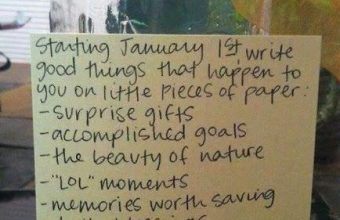 Starting January 1st, write
good things that happen to
you on little pieces of paper:
- surprise gifts
- accomplished goals
- the beauty of nature
- "LOL" moments
- memories worth saving